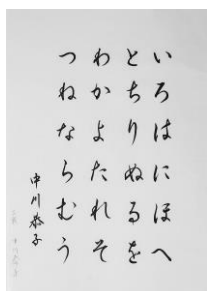 いろはにほへ
とちりぬるを
わかよたれそ
つねならむう
中川恭子